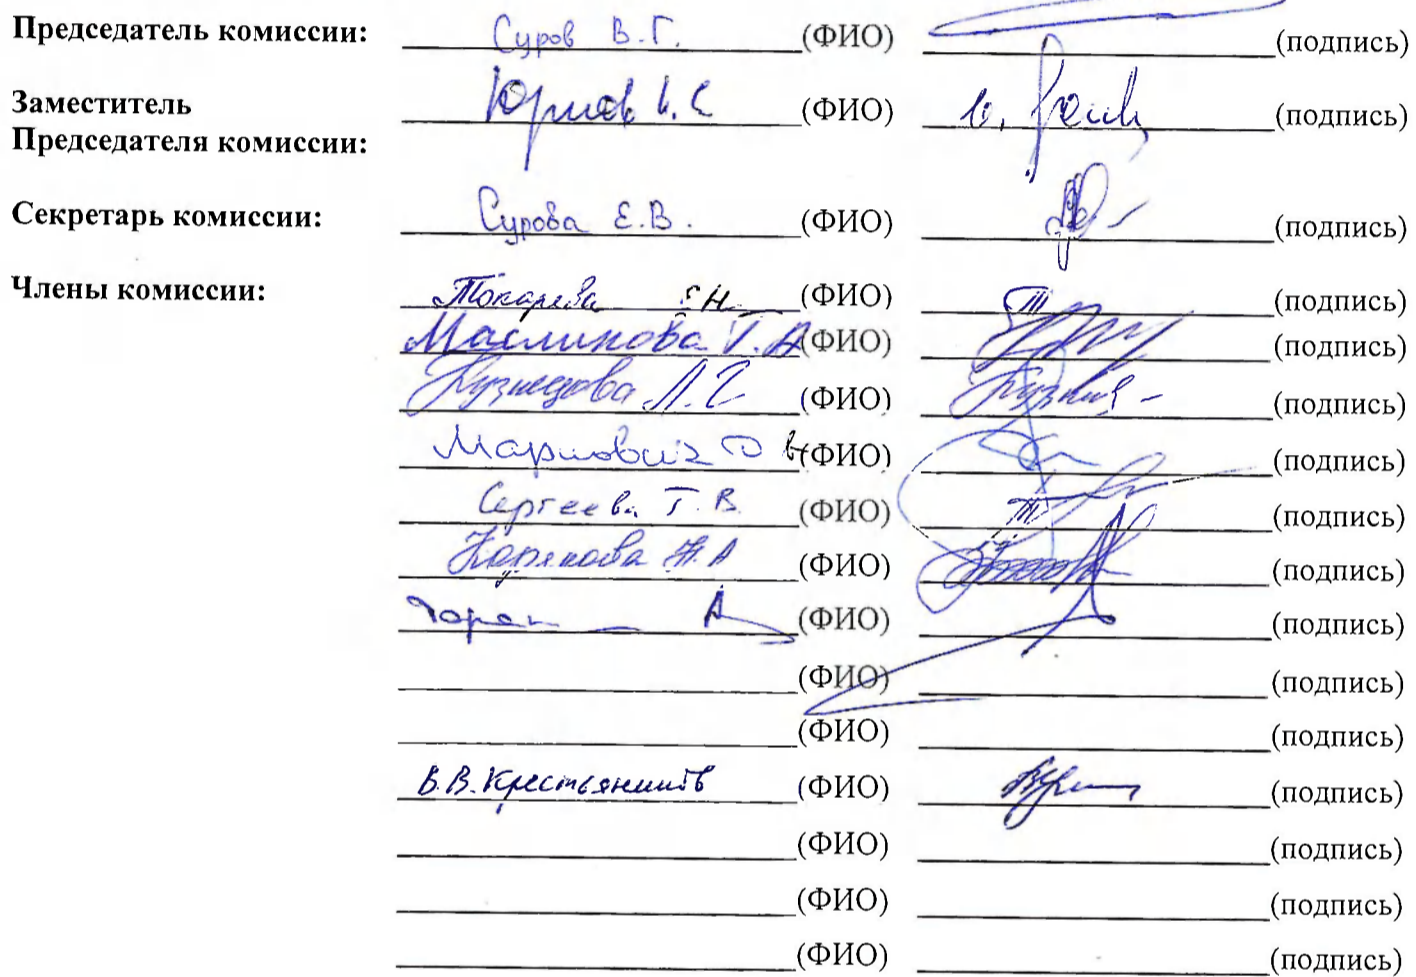 Председатель комиссии: Суров В.Г. (ФИО) (подпись)
Заместитель (ФИО) (подпись)
Председателя комиссии:
Секретарь комиссии: Сурова Е.В. (ФИО) (подпись)
Члены комиссии: Токарева Н (ФИО) (подпись)
Маслинова Т.А (ФИО) (подпись)
Кузнецова Л.Г (ФИО) (подпись)
(ФИО) (подпись)
Сергеева Т.В. (ФИО) (подпись)
А (ФИО) (подпись)
А (ФИО) (подпись)
(ФИО) (подпись)
(ФИО) (подпись)
В.В.Крестьянинов (ФИО) (подпись)
(ФИО) (подпись)
(ФИО) (подпись)
(ФИО) (подпись)